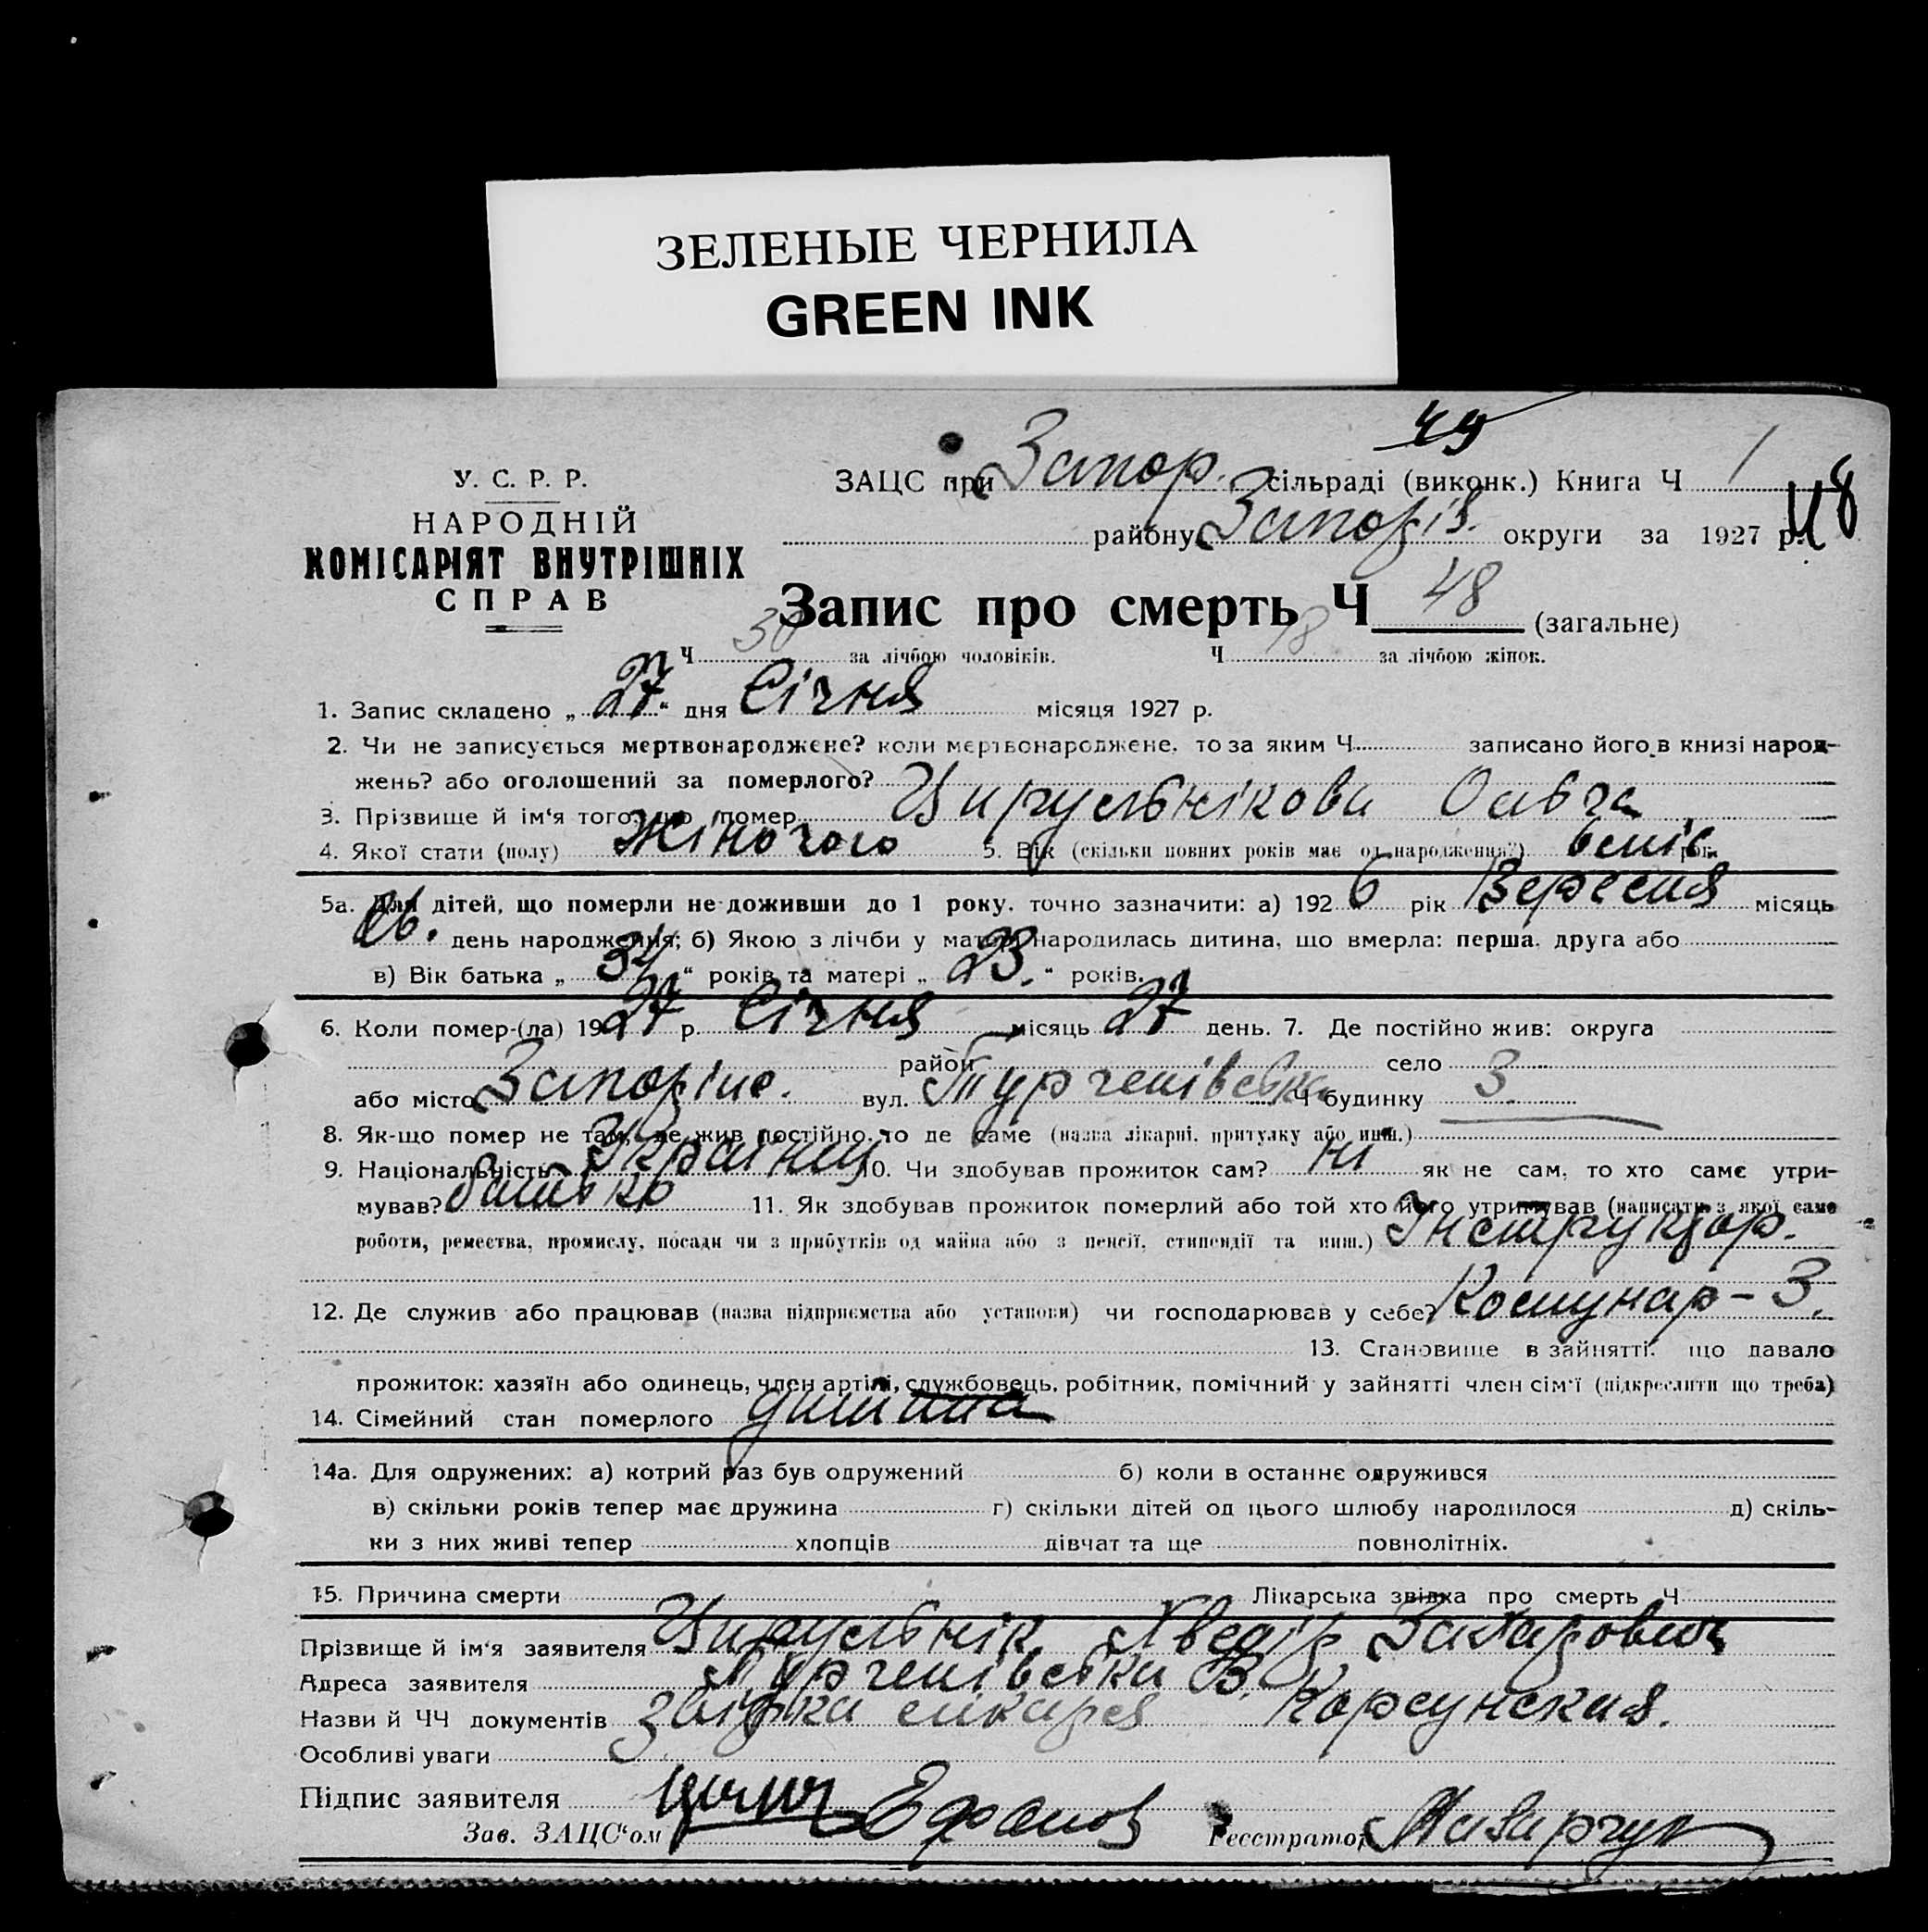 ЗЕЛЕНЫЕ ЧЕРНИЛА
GREEN INK
49
У. С. Р. Р.
НАРОДНІЙ
КОМІСАРІЯТ ВНУТРІШНІХ
СПРАВ
ЗАЦС при Запор. сільраді (виконк.) Книга Ч 1
району Запоріз. округи за 1927 р. 48
Запис про смерть Ч 48 (загальне)
Ч 30 за лічбою чоловіків. Ч 18 за лічбою жінок.
1. Запис складено „27“ дня Січня місяця 1927 р.
2. Чи не записується мертвонароджене? коли мертвонароджене, то за яким Ч записано його в книзі народ-
жень? або оголошений за померлого?
3. Прізвище й ім‘я того, що помер Цирульнікова Ольга
4. Якої стати (полу) Жіночого 5. Вік (скільки повних років має од народження?) рок.
5а. Для дітей, що померли не доживши до 1 року, точно зазначити: а) 1926 рік Вересня місяць
26. день народження; б) Якою з лічби у матері народилась дитина, що вмерла: перша, друга або
в) Вік батька „34“ років та матері „23.“ років.
6. Коли помер-(ла) 1927 р. Січня місяць 27 день. 7. Де постійно жив: округа
район село
або місто Запоріже. вул. Ч будинку 3.
8. Як-що помер не там, де жив постійно, то де саме (назва лікарні, притулку або инш.)
9. Національність Українец 10. Чи здобував прожиток сам? ні як не сам, то хто саме утри-
мував? батько 11. Як здобував прожиток померлий або той хто його утримував (написати з якої саме
роботи, ремества, промислу, посади чи з прибутків од майна або з пенсії, стипендії та инш.) Інструктор.
12. Де служив або працював (назва підприємства або установи) чи господарював у себе? Комунар-3.
13. Становище в зайнятті, що давало
прожиток: хазяїн або одинець, член артілі, службовець, робітник, помічний у зайнятті член сім‘ї (підкреслити що треба)
14. Сімейний стан померлого дитина
14а. Для одружених: а) котрий раз був одружений б) коли в останнє одружився
в) скільки років тепер має дружина г) скільки дітей од цього шлюбу народилося д) скіль-
ки з них живі тепер хлопців дівчат та ще повнолітніх.
15. Причина смерти Лікарська звідка про смерть Ч
Прізвище й ім‘я заявителя Цирульнік Хведір Захарович
Адреса заявителя
Назви й ЧЧ документів звідка лікаря Корсунская.
Особливі уваги
Підпис заявителя
Зав. ЗАЦС‘ом Реєстратор